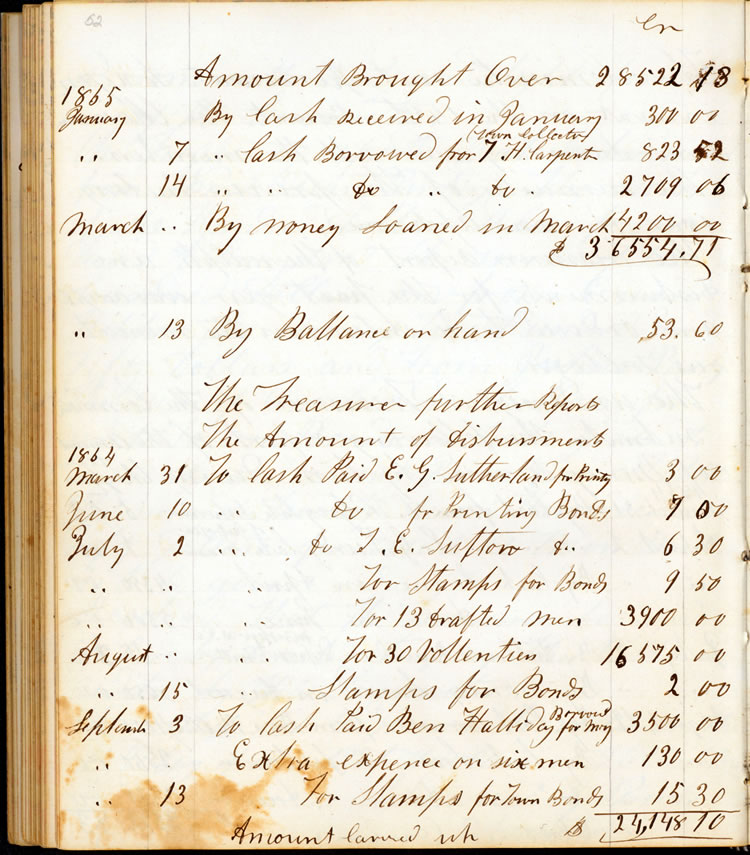 52
Cr
Amount Brought Over 28522 13
1865
January By Cash received in January 300 00
(Town Collector)
" 7 " Cash Borrowed from T. H. Carpent 823 52
14 " " do " do " 2709 06
March " By money Loaned in March 4200 00
$ 36554.71
" 13 By Ballance on hand 53.60
The Treasurer further Reports
The Amount of disbursments
1864
March 31 To Cash Paid E. G. Sutherland for Printg 3 00
June 10 do for Printing Bonds 7 00
July 2 " " do T. E. Suttow do 6 30
" " " For Stamps for Bonds 9 50
" " " For 13 drafted men 3900 00
August " " For 30 Vollentiers 16575 00
15 " Stamps for Bonds 2 00
Septemb 3 To Cash Paid Ben Halliday Borrowd for Mny 3500 00
" Extra expence on six men 130 00
" 13 For Stamps for Town Bonds 15 30
Amount carried up $ 24,148 10